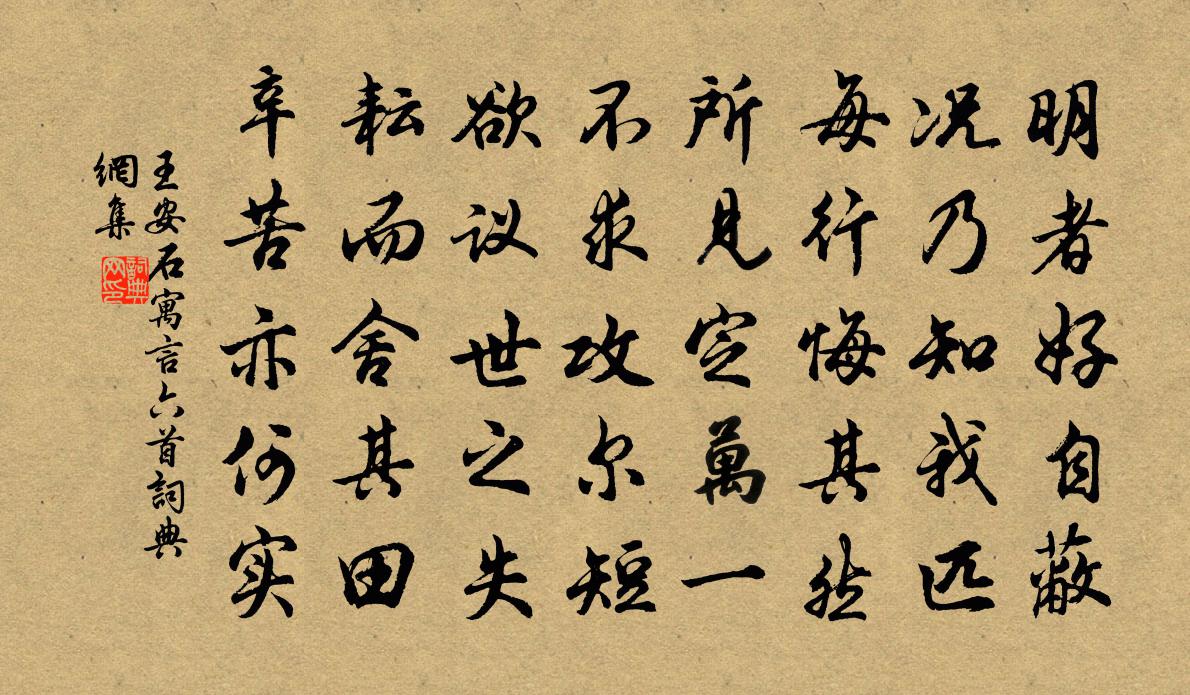 明者好自蔽
况乃知我匹
每行悔其然
所见定萬一
不求攻尔短
欲议世之失
耘而舍其田
辛苦亦何实
王安石寓言六首詞典
網集
詞典
网印